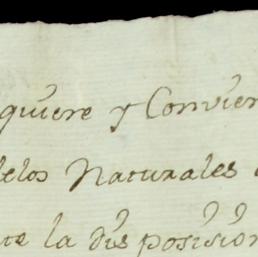 quiere y Convien
delos Naturales
te la disposision